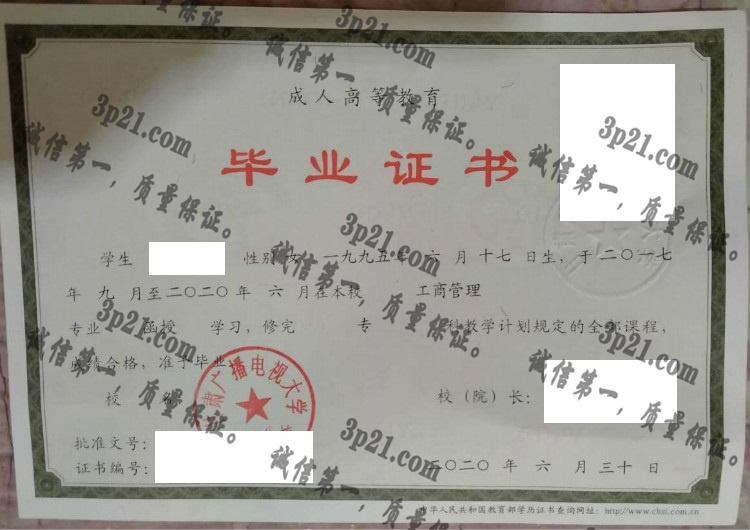 成人高等教育
毕业证书
学生 性别 女 一九九五年 六 月 十七 日生，于 二〇一七
年 九 月至二〇二〇年 六 月在本校 工商管理
专业 函授 学习，修完 专 科教学计划规定的全部课程，
成绩合格，准予毕业。
校 名： 校（院）长：
肃广播电视大学
批准文号：
证书编号： 二〇二〇 年 六 月 三十 日
中华人民共和国教育部学历证书查询网址：http://www.chsi.com.cn
3p21.com
诚信第一，质量保证。
3p21.com
诚信第一，质量保证。
3p21.com
诚信第一，质量保证。
3p21.com
诚信第一，质量保证。
3p21.com
诚信第一，质量保证。
3p21.com
诚信第一，质量保证。
3p21.com
诚信第一，质量保证。